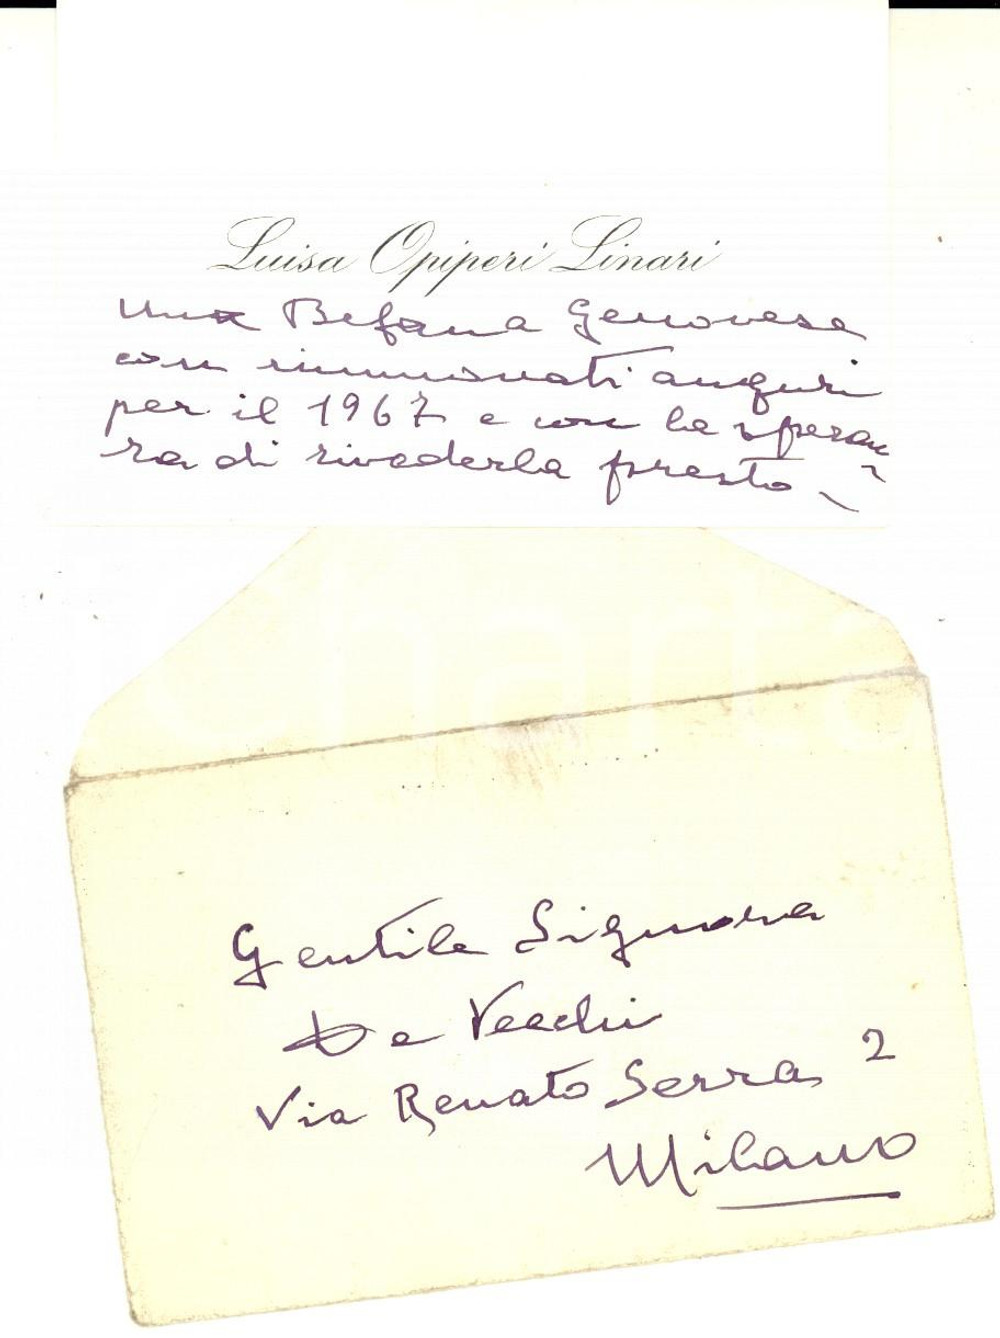 Luisa Opiperi Linari
Una Befana Genovese
con rinnovati auguri
per il 1967 e con la speran
za di rivederla presto
Gentile Signora
De Vecchi
Via Renato Serra 2
Milano